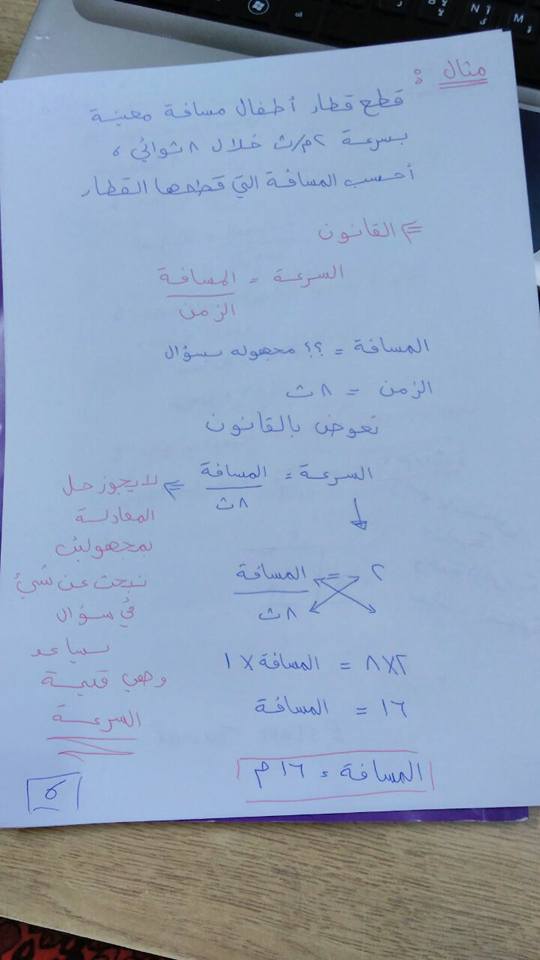 مثال :
قطع قطار أطفال مسافة معينة
بسرعة ٢م/ث خلال ٨ ثواني ،
أحسب المسافة التي قطعها القطار
⇐ القانون
السرعة = المسافة
الزمن
المسافة = ؟؟ مجهوله بسؤال
الزمن = ٨ ث
نعوض بالقانون
السرعة = المسافة
٨ ث
⇐ لا يجوز حل
المعادلة
بمجهولين
نبحث عن شيء
في سؤال
يساعد
وهي قيمة
السرعة
٢ = المسافة
٨ ث
٢×٨ = المسافة × ١
١٦ = المسافة
المسافة = ١٦ م
٥